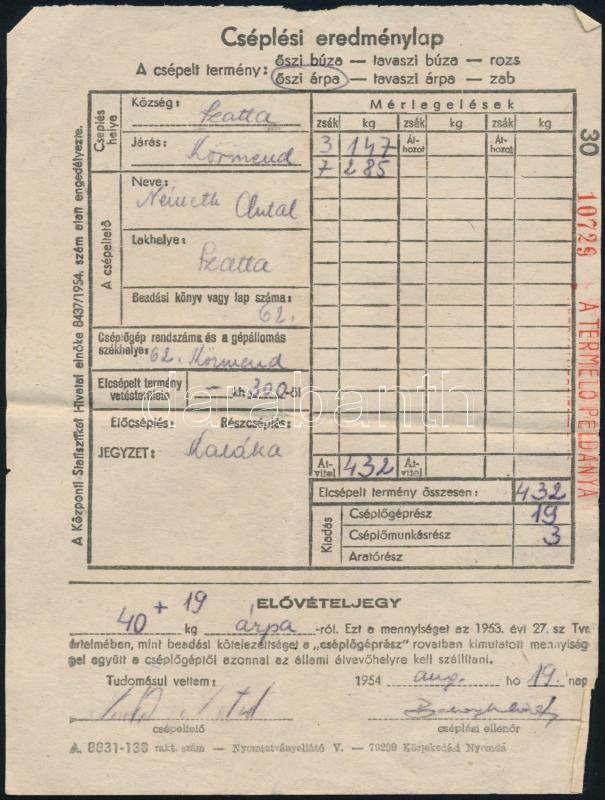 Cséplési eredménylap
A csépelt termény: őszi búza — tavaszi búza — rozs
őszi árpa — tavaszi árpa — zab
Cséplés helye
Község: Szatta
Járás: Körmend
A csépeltető
Neve:
Németh Antal
Lakhelye:
Szatta
Beadási könyv vagy lap száma:
62.
Cséplőgép rendszáma és a gépállomás
székhelye: 62. Körmend
Elcsépelt termény
vetésterülete — kh 300 -öl
Előcséplés: Részcséplés:
JEGYZET: Kaláka
Mérlegelések
zsák kg zsák kg zsák kg
3 147 Át-hozat Át-hozat
7 285
Át-vitel 432 Át-vitel
Elcsépelt termény összesen: 432
Kiadás
Cséplőgéprész 19
Cséplőmunkásrész 3
Aratórész
A Központi Statisztikai Hivatal elnöke 8437/1954. szám alatt engedélyezte.
30
10726 A TERMELŐ PÉLDÁNYA
ELŐVÉTELJEGY
40 + 19 kg árpa -ról. Ezt a mennyiséget az 1953. évi 27. sz Tvr.
értelmében, mint beadási kötelezettséget a „cséplőgéprész” rovatban kimutatott mennyiség
gel együtt a cséplőgéptől azonnal az állami átvevőhelyre kell szállítani.
Tudomásul vettem: 1954 aug. hó 19. nap
csépeltető cséplési ellenőr
A. 8831-138 rakt. szám — Nyomtatványellátó V. — 79290 Közlekedési Nyomda
darabanth